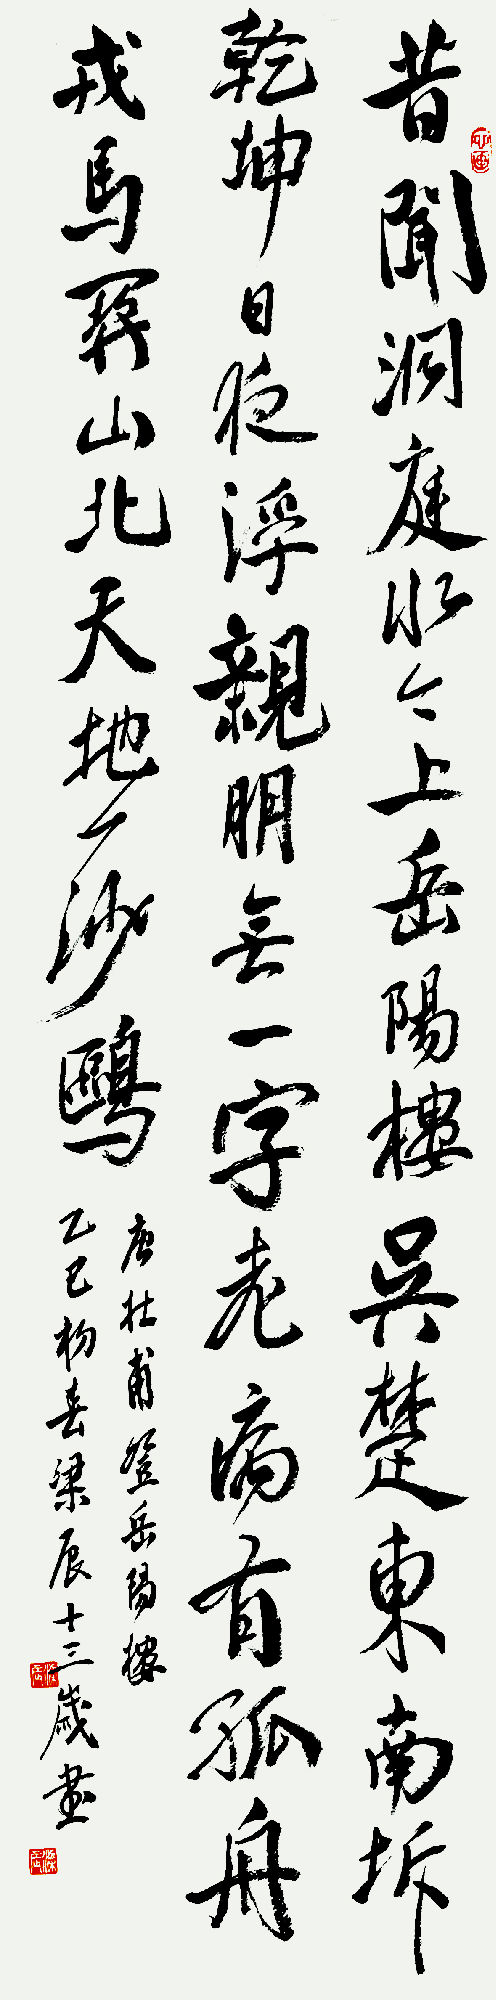 昔聞洞庭水今上岳陽樓吳楚東南坼
乾坤日夜浮親朋無一字老病有孤舟
戎馬關山北天地一沙鷗
唐杜甫登岳陽樓
乙巳初春梁辰十三歲書